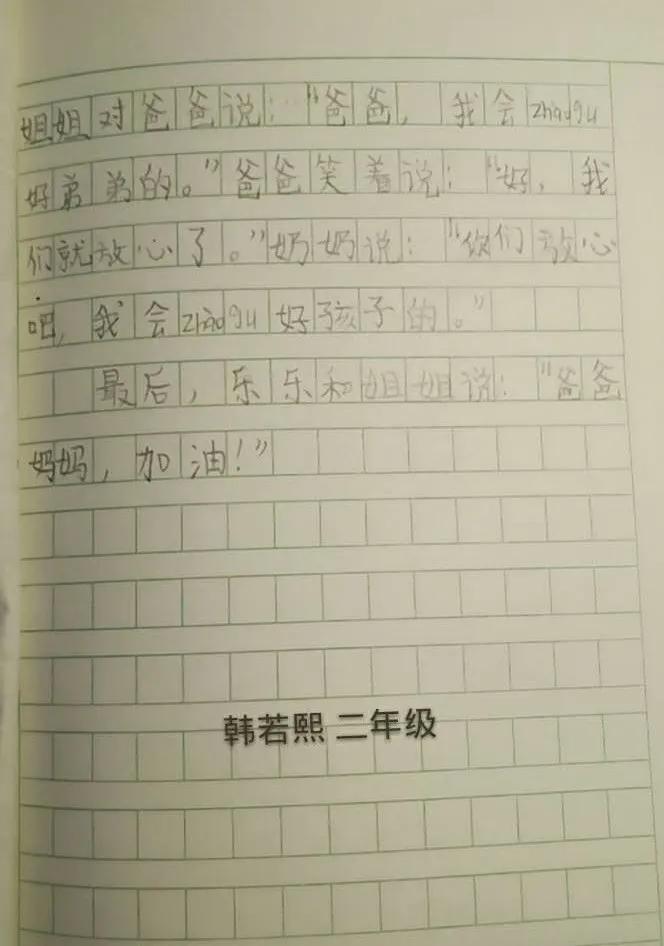 姐姐对爸爸说：“爸爸，我会zhàogu
好弟弟的。”爸爸笑着说：“好，我
们就放心了。”奶奶说：“你们放心
吧，我会zhàogu好孩子的。”
最后，乐乐和姐姐说：“爸爸
妈妈，加油！”
韩若熙 二年级